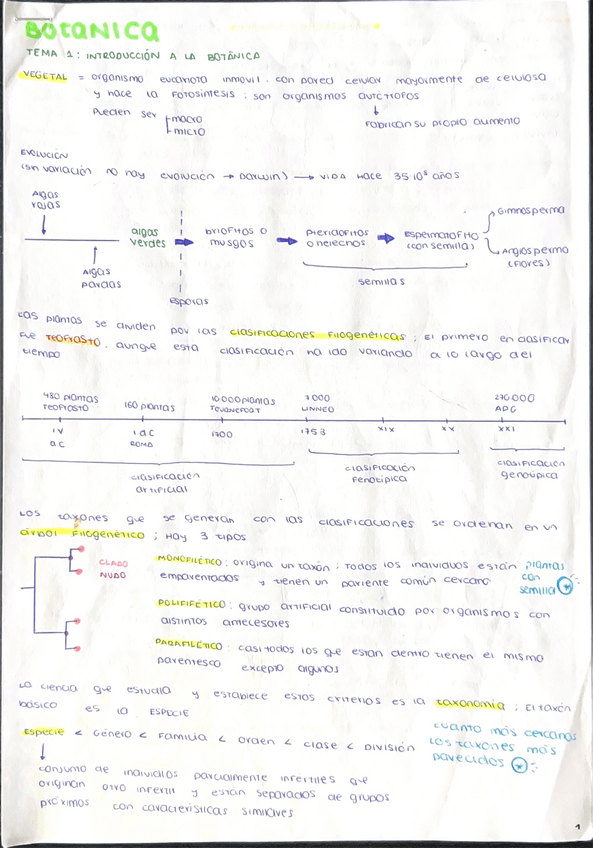 BOTANICA
TEMA 1: INTRODUCCIÓN A LA BOTÁNICA
VEGETAL = organismo eucarioto inmovil, con pared celular mayormente de celulosa
y hace la fotosintesis; son organismos autótrofos
Pueden ser macro
micro
Fabrican su propio aumento
EVOLUCIÓN
(sin variación no hay evolución → Darwin) → VIDA HACE 35·10⁸ años
Algas
rojas
Algas
pardas
algas
verdes
Esporas
briofitos o
musgos
Pteridofitos
o helechos
Espermatofito
(con semilla)
semillas
Gimnosperma
Angiospermo
(flores)
Las plantas se dividen por las clasificaciones filogenéticas; El primero en clasificar
fue TEOFRASTO, aunque esta clasificación ha ido variando a lo largo del
tiempo
480 plantas
TEOFRASTO
160 plantas
10000 plantas
7000
LINNEO
270.000
APG
IV
a.C
1 d.C
ROMA
1700
1753
XIX
XX
XXI
clasificación
artificial
clasificación
fenotípica
clasificación
genotípica
Los taxones que se generan con las clasificaciones se ordenan en un
árbol filogenético; Hay 3 tipos
CLADO
NUDO
MONOFILÉTICO: origina un taxón; Todos los individuos están
emparentados y tienen un pariente común cercano
plantas
con
semilla
POLIFIFÉTICO: grupo artificial constituido por organismos con
distintos antecesores
PARAFILÉTICO: casi todos los que estan dentro tienen el mismo
parentesco excepto algunos
La ciencia que estudia y establece estos criterios es la taxonomía; El taxón
básico es la ESPECIE
Especie < Género < Familia < orden < clase < División
cuanto más cercanos
los taxones más
parecidos
conjunto de individuos parcialmente infertiles que
originan otro infertil y están separados de grupos
próximos con características similares
1